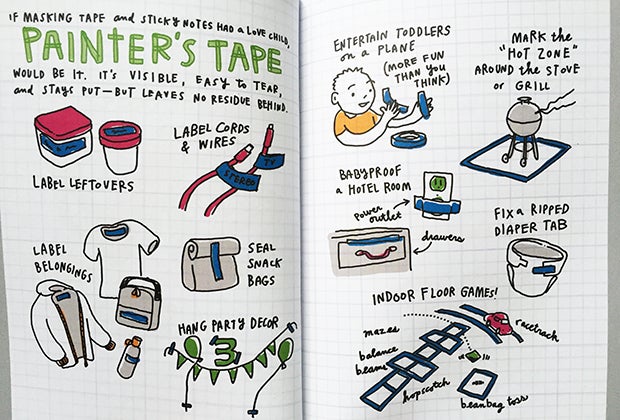 IF MASKING TAPE and STICKY NOTES HAD a LOVE CHILD,
PAINTER'S TAPE
WOULD BE IT. IT'S VISIBLE, EASY to TEAR,
and STAYS PUT—BUT LEAVES NO RESIDUE BEHIND.
LABEL LEFTOVERS
LABEL CORDS
& WIRES
STEREO
TV
LABEL
BELONGINGS
SEAL
SNACK
BAGS
HANG PARTY DECOR
3
ENTERTAIN TODDLERS
on a PLANE
(MORE FUN
THAN YOU
THINK)
MARK the
"HOT ZONE"
AROUND the STOVE
or GRILL
BABYPROOF
a HOTEL ROOM
power
outlet
drawers
FIX a RIPPED
DIAPER TAB
INDOOR FLOOR GAMES!
mazes
balance
beams
hopscotch
racetrack
beanbag toss